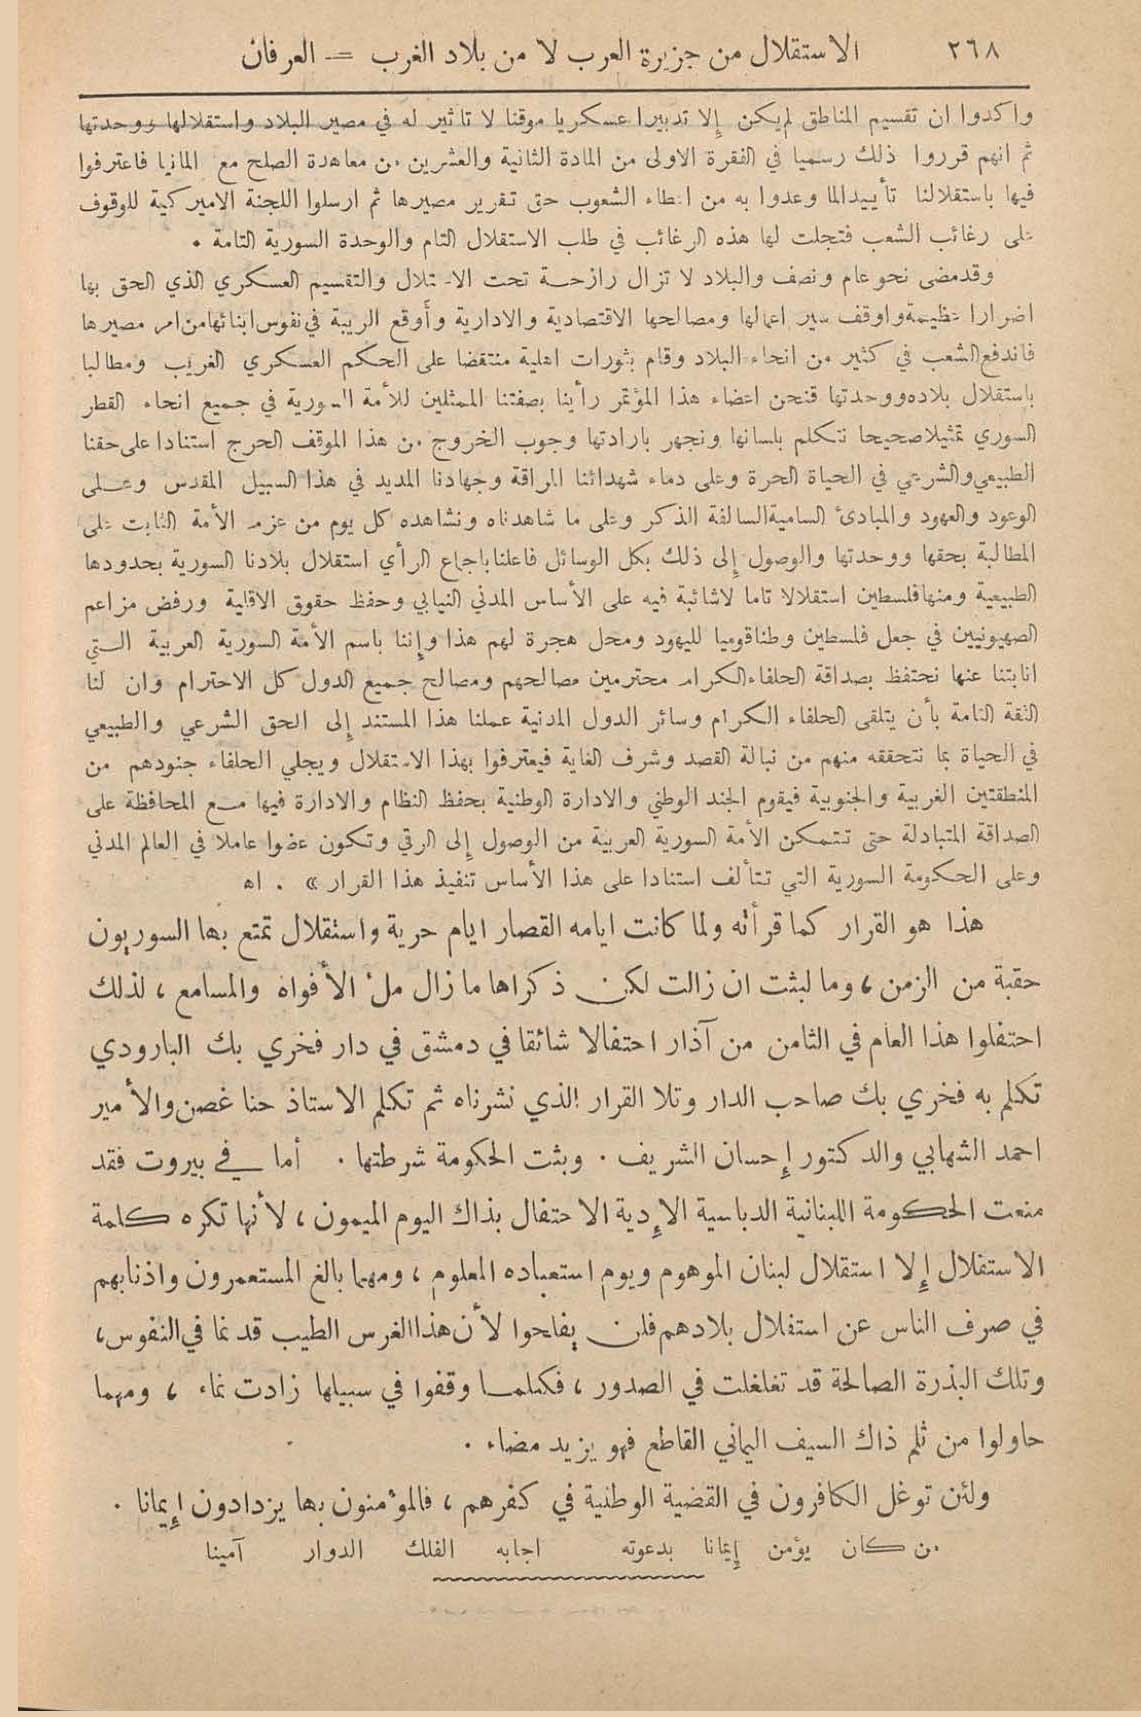 ٢٦٨ الاستقلال من جزيرة العرب لا من بلاد الغرب = العرفان
واكدوا ان تقسيم المناطق لم يكن إلا تدبيرا عسكريا موقتا لا تاثير له في مصير البلاد واستقلالها ووحدتها
ثم انهم قرروا ذلك رسميا في الفقرة الاولى من المادة الثانية والعشرين من معاهدة الصلح مع المانيا فاعترفوا
فيها باستقلالنا تأييدا لما وعدوا به من اعطاء الشعوب حق تقرير مصيرها ثم ارسلوا اللجنة الاميركية للوقوف
على رغائب الشعب فتجلت لها هذه الرغائب في طلب الاستقلال التام والوحدة السورية التامة .
وقد مضى نحو عام ونصف والبلاد لا تزال رازحة تحت الاحتلال والتقسيم العسكري الذي الحق بها
اضرارا عظيمة واوقف سير اعمالها ومصالحها الاقتصادية والادارية وأوقع الريبة في نفوس ابنائها من امر مصيرها
فاندفع الشعب في كثير من انحاء البلاد وقام بثورات اهلية منتقضا على الحكم العسكري الغريب ومطالبا
باستقلال بلاده ووحدتها فنحن اعضاء هذا المؤتمر رأينا بصفتنا الممثلين للأمة السورية في جميع انحاء القطر
السوري تمثيلا صحيحا نتكلم بلسانها ونجهر بارادتها وجوب الخروج من هذا الموقف الحرج استنادا على حقنا
الطبيعي والشرعي في الحياة الحرة وعلى دماء شهدائنا المراقة وجهادنا المديد في هذا السبيل المقدس وعلى
الوعود والعهود والمبادئ السامية السالفة الذكر وعلى ما شاهدناه ونشاهده كل يوم من عزم الأمة الثابت على
المطالبة بحقها ووحدتها والوصول إلى ذلك بكل الوسائل فاعلنا باجماع الرأي استقلال بلادنا السورية بحدودها
الطبيعية ومنها فلسطين استقلالا تاما لا شائبة فيه على الأساس المدني النيابي وحفظ حقوق الاقلية ورفض مزاعم
الصهيونيين في جعل فلسطين وطنا قوميا لليهود ومحل هجرة لهم هذا وإننا باسم الأمة السورية العربية التي
انابتنا عنها نحتفظ بصداقة الحلفاء الكرام محترمين مصالحهم ومصالح جميع الدول كل الاحترام وان لنا
الثقة التامة بأن يتلقى الحلفاء الكرام وسائر الدول المدنية عملنا هذا المستند إلى الحق الشرعي والطبيعي
في الحياة بما نتحققه منهم من نبالة القصد وشرف الغاية فيعترفوا بهذا الاستقلال ويجلي الحلفاء جنودهم من
المنطقتين الغربية والجنوبية فيقوم الجند الوطني والادارة الوطنية بحفظ النظام والادارة فيها مع المحافظة على
الصداقة المتبادلة حتى تتمكن الأمة السورية العربية من الوصول إلى الرقي وتكون عضوا عاملا في العالم المدني
وعلى الحكومة السورية التي تتألف استنادا على هذا الأساس تنفيذ هذا القرار » . اه
هذا هو القرار كما قرأته ولما كانت ايامه القصار ايام حرية واستقلال تمتع بها السوريون
حقبة من الزمن ، وما لبثت ان زالت لكن ذكراها ما زال ملء الأفواه والمسامع ، لذلك
احتفلوا هذا العام في الثامن من آذار احتفالا شائقا في دمشق في دار فخري بك البارودي
تكلم به فخري بك صاحب الدار وتلا القرار الذي نشرناه ثم تكلم الاستاذ حنا غصن والأمير
احمد الشهابي والدكتور إحسان الشريف . وبثت الحكومة شرطتها . أما في بيروت فقد
منعت الحكومة اللبنانية الدباسية الإدية الاحتفال بذاك اليوم الميمون ، لأنها تكره كلمة
الاستقلال إلا استقلال لبنان الموهوم ويوم استعباده المعلوم ، ومهما بالغ المستعمرون واذنابهم
في صرف الناس عن استقلال بلادهم فلن يفلحوا لأن هذا الغرس الطيب قد نما في النفوس ،
وتلك البذرة الصالحة قد تغلغلت في الصدور ، فكلما وقفوا في سبيلها زادت نماء ، ومهما
حاولوا من ثلم ذاك السيف اليماني القاطع فهو يزيد مضاء .
ولئن توغل الكافرون في القضية الوطنية في كفرهم ، فالمؤمنون بها يزدادون إيمانا .
من كان يؤمن إيمانا بدعوته اجابه الفلك الدوار آمينا